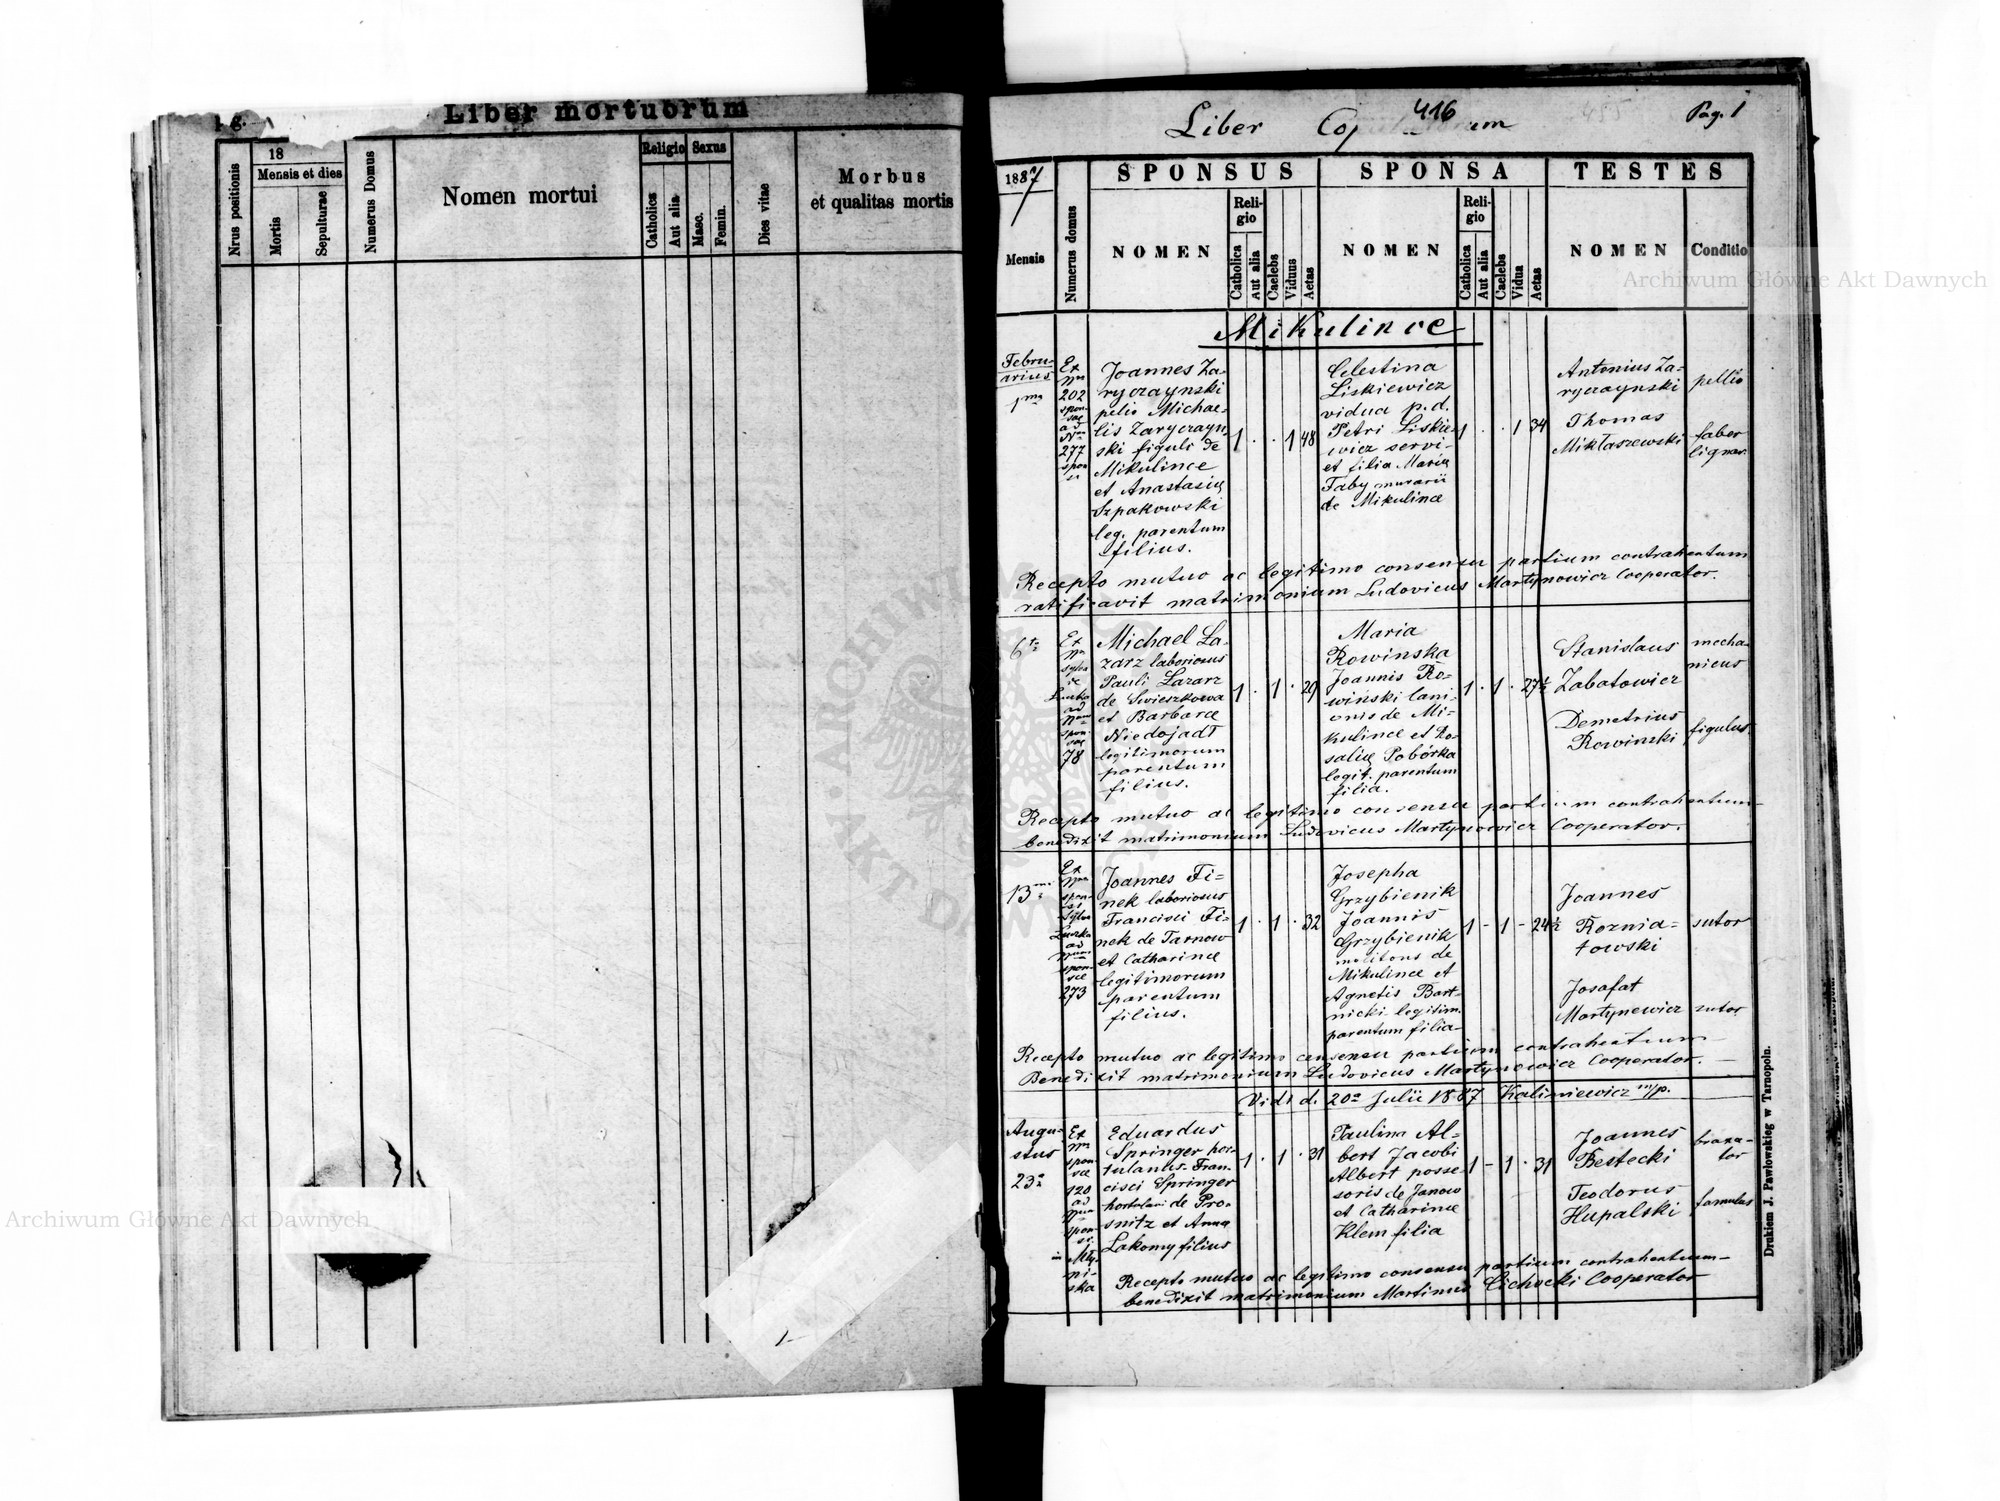 Liber mortuorum
Nrus positionis
18
Mensis et dies
Mortis
Sepulturae
Numerus Domus
Nomen mortui
Religio
Catholica
Aut alia
Sexus
Masc.
Femin.
Dies vitae
Morbus
et qualitas mortis
1-
416
Pag. 1
Liber Copulatorum
1887
Mensis
Numerus domus
SPONSUS
NOMEN
Religio
Catholica
Aut alia
Caelebs
Viduus
Aetas
SPONSA
NOMEN
Religio
Catholica
Aut alia
Caelebs
Vidua
Aetas
TESTES
NOMEN
Conditio
Mikulince
Febru-
arius
1ma
Ex
Nro
202
spon-
sae
ad
Nrum
277
spon
si
Joannes Za-
ryczaynski
pelio Michae-
lis Zaryczayn-
ski figuli de
Mikulince
et Anastasię
Szpakowski
leg. parentum
filius.
1 . . 1 48
Celestina
Liskiewicz
vidua p. d.
Petri Liskie-
wicz servi-
et filia Marię
Faby murarii
de Mikulince
1 . . 1 34
Antonius Za-
ryczaynski
pellio
Thomas
Miktaszewski
faber
lignar.
Recepto mutuo ac legitimo consensu partium contrahentum
ratificavit matrimonium Ludovicus Martynowicz Cooperator.
6ta
Ex
Nro
sylva
ic
Luczka
ad
Nrum
spon-
sae
78
Michael La-
zarz laboriosus
Pauli Lazarz
de Swieszkowa
et Barbarae
Niedojadł
legitimorum
parentum
filius.
1 . 1 . 29
Maria
Rowinska
Joannis Ro-
wiński lani-
onis de Mi-
kulince et Ro-
salię Pobórka
legit. parentum
filia.
1 . 1 . 27½
Stanislaus
Zabatowicz
mecha-
nicus
Demetrius
Rowinski
figulus
Recepto mutuo ac legitimo consensu partium contrahentum
benedixit matrimonium Ludovicus Martynowicz Cooperator.
13
Ex
Nro
spon-
si
Sylva
Luczka
ad
Nrum
spon-
sae
273
Joannes Fi-
nek laboriosus
Francisci Fi-
nek de Tarnow
et Catharinae
legitimorum
parentum
filius.
1 . 1 . 32
Josepha
Grzybienik
Joannis
Grzybienik
molitoris de
Mikulince et
Agnetis Bart-
nicki legitim.
parentum filia-
1 - 1 - 24½
Joannes
Roznia-
towski
sutor
Josafat
Martynewicz
sutor
Recepto mutuo ac legitimo consensu partium contrahentum
Benedixit matrimonium Ludovicus Martynowicz Cooperator.
Vidi d. 20a Julii 1887 Kaliniewicz m/p.
Augu-
stus
23a
Ex
Nro
spon-
sae
120
ad
Nrum
spon-
si
in Mły-
ni-
ska
Eduardus
Springer hor-
tulanus Fran-
cisci Springer
hortulani de Pro-
snitz et Anna
Lakomy filius
1 . 1 . 31
Paulina Al-
bert Jacobi
Albert posse-
soris de Janow
et Catharinae
Klem filia
1 - 1 . 31
Joannes
Bestecki
braxa-
tor
Teodorus
Hupalski
famulus
Recepto mutuo ac legitimo consensu partium contrahentum-
benedixit matrimonium Martinus Cichocki Cooperator
Drukiem J. Pawłowskieg w Tarnopolu.
Archiwum Główne Akt Dawnych
Archiwum Główne Akt Dawnych
ARCHIWUM
AKT DAWNYCH